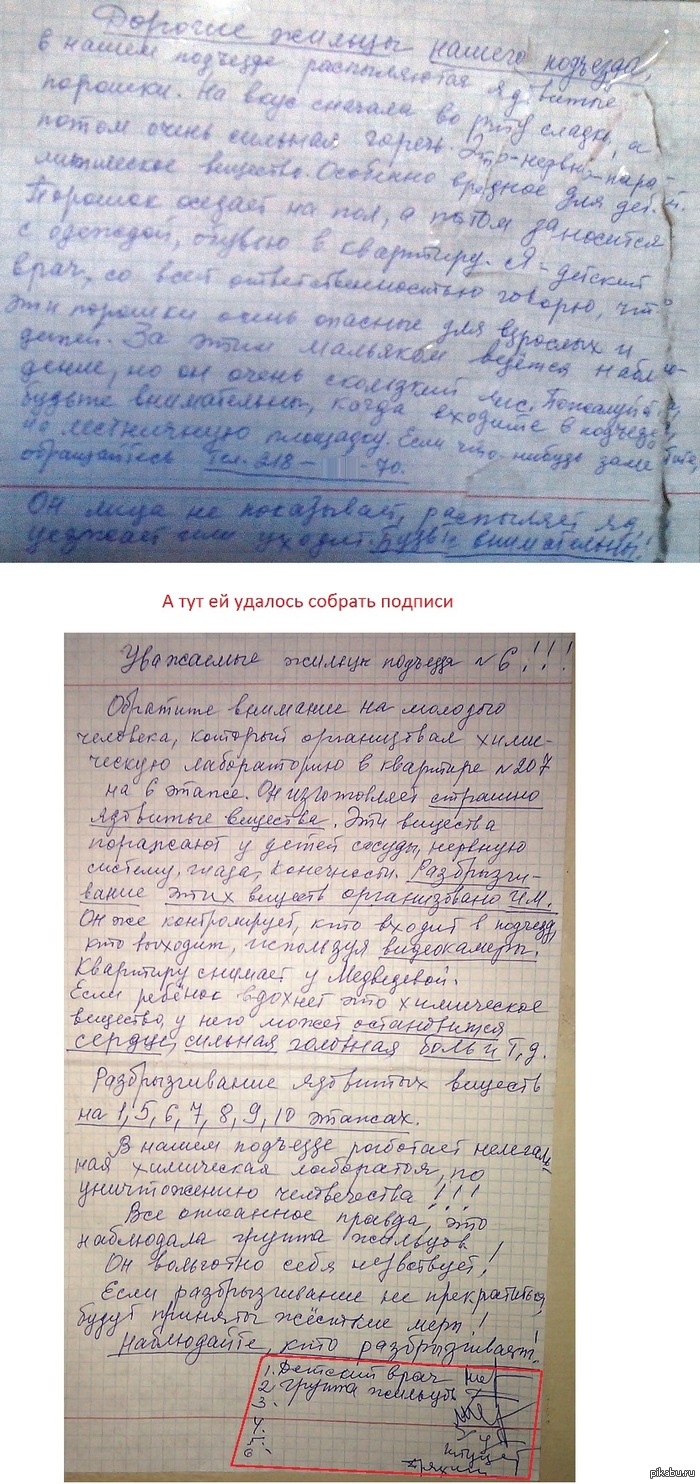 Дорогие жильцы нашего подъезда,
в нашем подъезде распыляются ядовитые
порошки. На вкус сначала во рту сладко, а
потом очень сильная горечь. Это-нервно-пара-
литическое вещество. Особенно вредное для детей.
Порошок оседает на пол, а потом заносится
с одеждой, обувью в квартиру. Я - детский
врач, со всей ответственностью говорю, что
эти порошки очень опасные для взрослых и
детей. За этим мальяком ведётся наблю-
дение, но он очень скользкий лис. Пожалуйста,
будьте внимательны, когда входите в подъезд,
на лестничную площадку. Если что-нибудь заметите,
обращайтесь Тел. 218- -70.
Он лица не показывает, распыляет яд,
уезжает или уходит. Будьте внимательны!
А тут ей удалось собрать подписи
Уважаемые жильцы подъезда №6!!!
Обратите внимание на молодого
человека, который организовал хими-
ческую лабораторию в квартире №207
на 6 этаже. Он изготовляет страшно
ядовитые вещества. Эти вещества
поражают у детей сосуды, нервную
систему, глаза, конечности. Разбрызги-
вание этих веществ организовано ИМ.
Он же контролирует, кто входит в подъезд,
кто выходит, используя видеокамеры.
Квартиру снимает у Медведевой.
Если ребёнок вдохнет это химическое
вещество, у него может остановиться
сердце, сильная головная боль и т.д.
Разбрызгивание ядовитых веществ
на 1, 5, 6, 7, 8, 9, 10 этажах.
В нашем подъезде работает нелегаль-
ная химическая лаборатоя, по
уничтожению человечества!!!
Все описанное правда, это
наблюдала группа жильцов!
Он вольготно себя чувствует!
Если разбрызгивание не прекратиться,
будут приняты жёсткие меры!!
Наблюдайте, кто разбрызгивает!
1. Детский врач
2. Группа жильцов
3.
4.
5.
6.
pikabu.ru